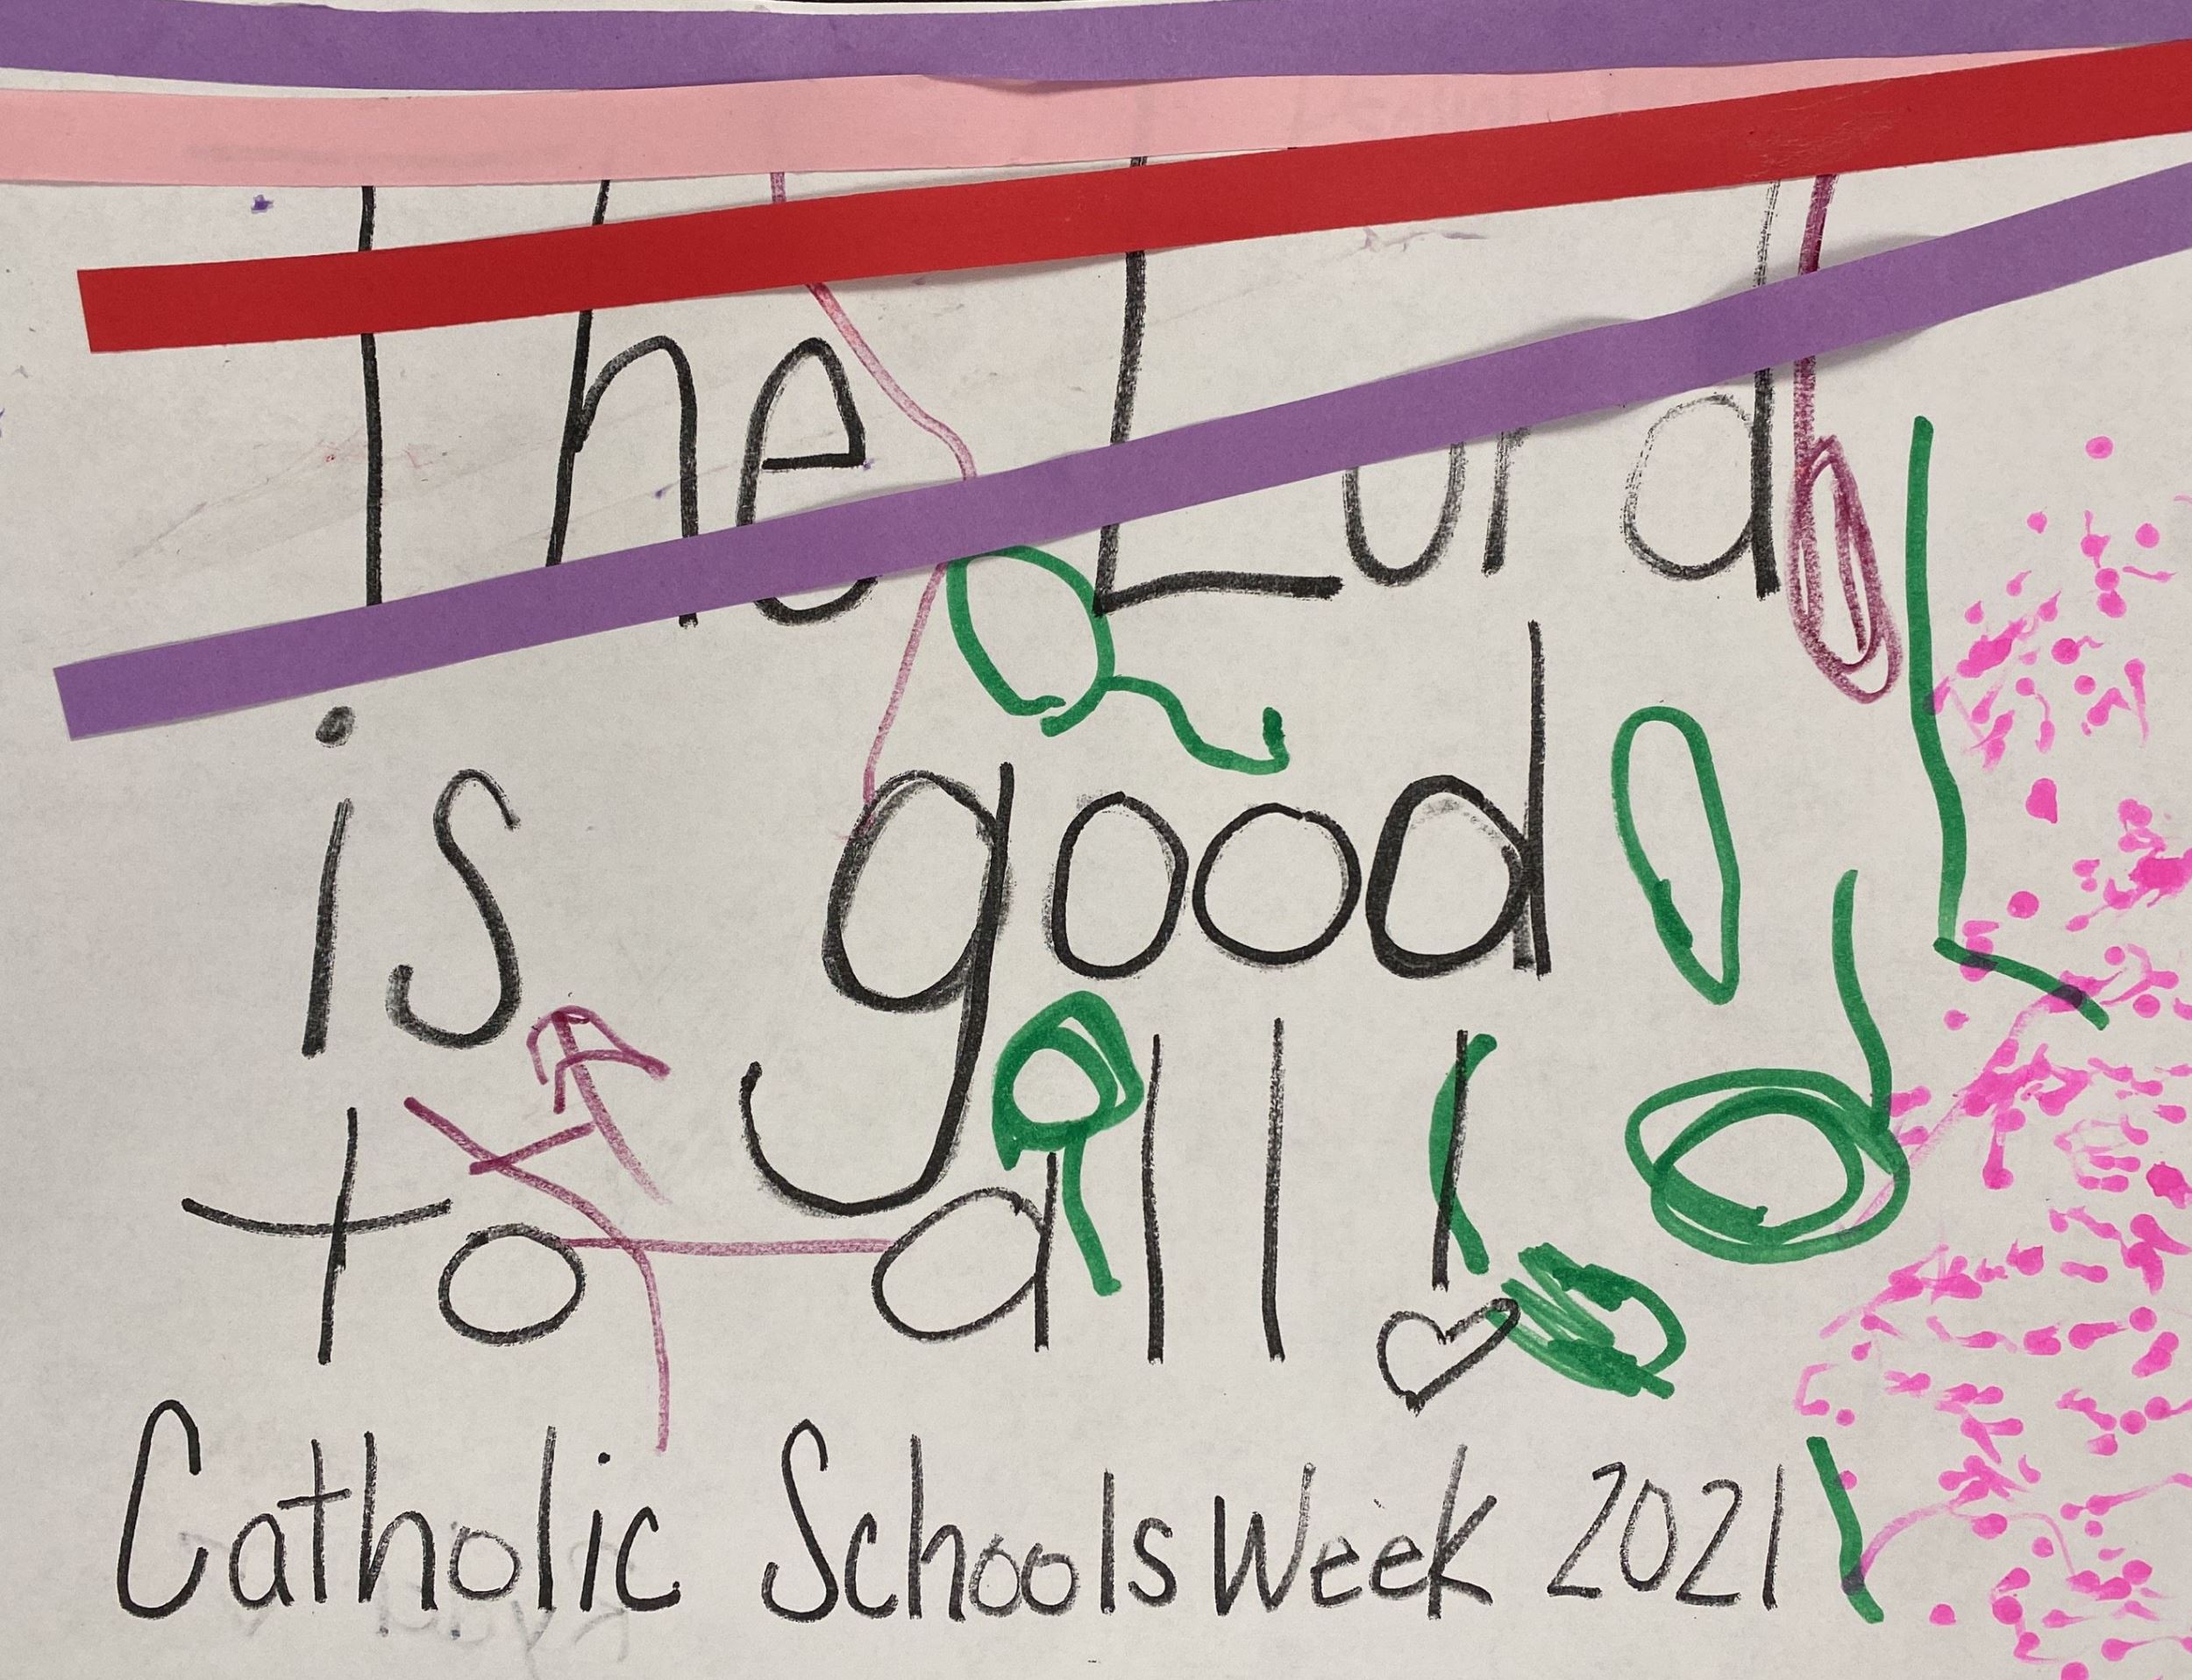 The Lord
is good
to all!
Catholic Schools Week 2021